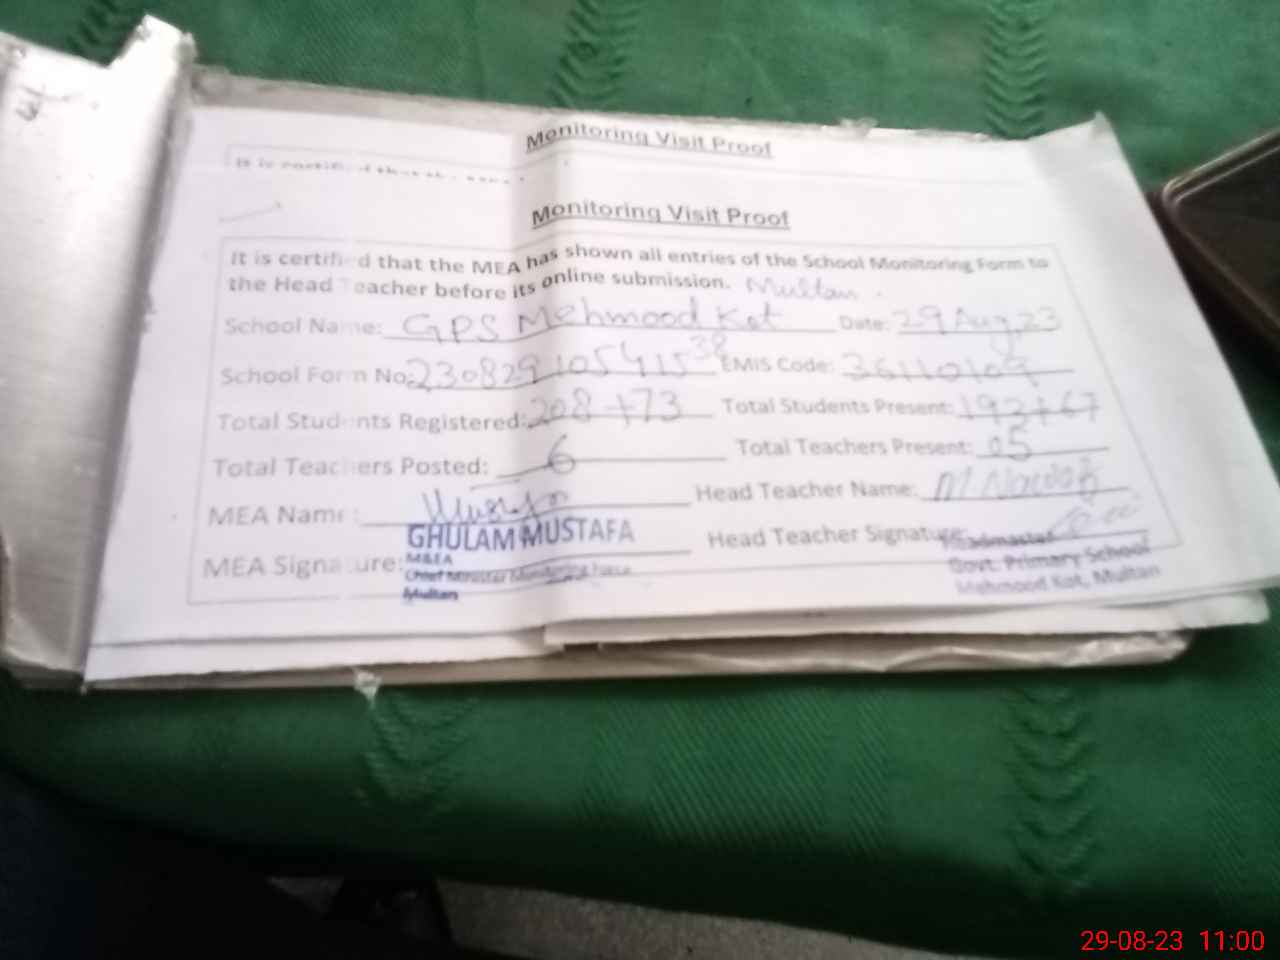 Monitoring Visit Proof
It is certified that the
Monitoring Visit Proof
It is certified that the MEA has shown all entries of the School Monitoring Form to
the Head Teacher before its online submission. Multan.
School Name: GPS Mehmood Kot Date: 29 Aug, 23
School Form No: 23082910541538 EMIS Code: 36110109
Total Students Registered: 208+73 Total Students Present: 192+67
Total Teachers Posted: 6 Total Teachers Present: 05
MEA Name: Head Teacher Name: M. Nawaz
GHULAM MUSTAFA
MEA Signature: Head Teacher Signature:
M&EA
Chief Minister Monitoring Force
Multan
Headmaster
Govt. Primary School
Mehmood Kot, Multan
29-08-23 11:00